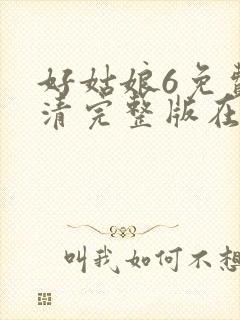 好姑娘6免费
清完整版在
叫我如何不想